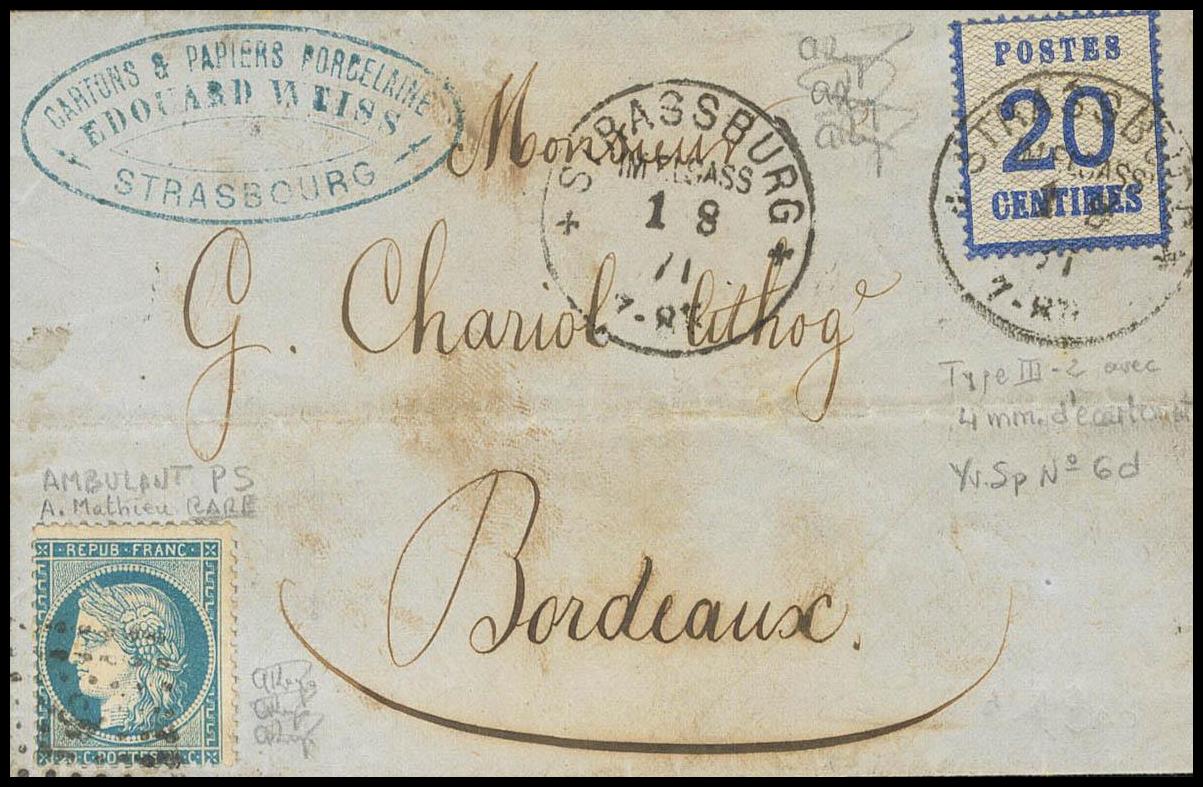 CARTONS & PAPIERS PORCELAINE
EDOUARD WEISS
STRASBOURG
Monsieur
STRASSBURG
IM ELSASS
1 8
71
POSTES
20
CENTIMES
STRASSBURG
G. Chariol lithog
Type III-2 avec
4 mm. d'écartement
Yv. Sp Nº 6d
AMBULANT PS
A. Mathieu RARE
Bordeaux.
REPUB · FRANC ·
POSTES